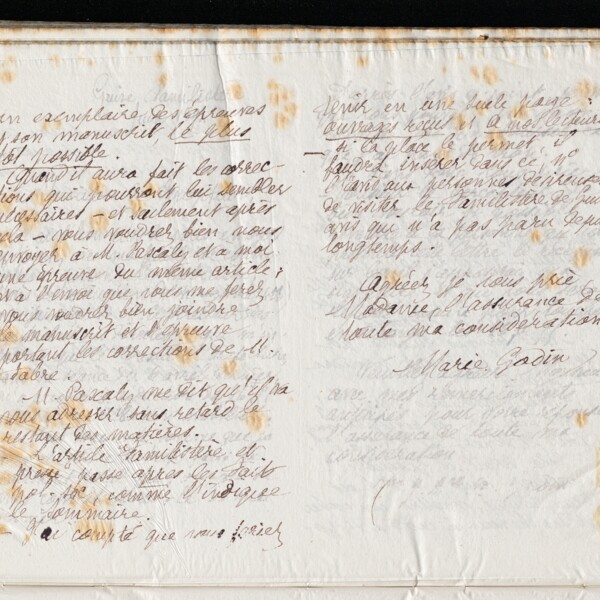 un exemplaire des épreuves
son manuscrit, le plus
tôt possible.
Quand il aura fait les correc-
tions qui pourront lui sembler
nécessaires - et seulement après
cela - vous voudrez bien nous
envoyer à M. Pascaly et à moi
une épreuve du même article;
à l'envoi que vous me ferez
vous voudrez bien joindre
le manuscrit et l'épreuve
portant les corrections de M.
Fabre.
M. Pascaly me dit qu'il va
vous adresser sans retard le
restant des matières.
L'article Familistère et
presse passe après les faits
pol. soc., comme l'indique
le sommaire.
- J'ai compté que vous feriez
tenir en une seule page:
ouvrages reçus et à nos lecteurs
- si la place le permet, il
faudra insérer dans ce no
l'avis aux personnes désireuses
de visiter le Familistère de Guise
avis qui n'a pas paru depuis
longtemps.
Agréez, je vous prie
Madame, l'assurance de
toute ma considération
Marie Godin